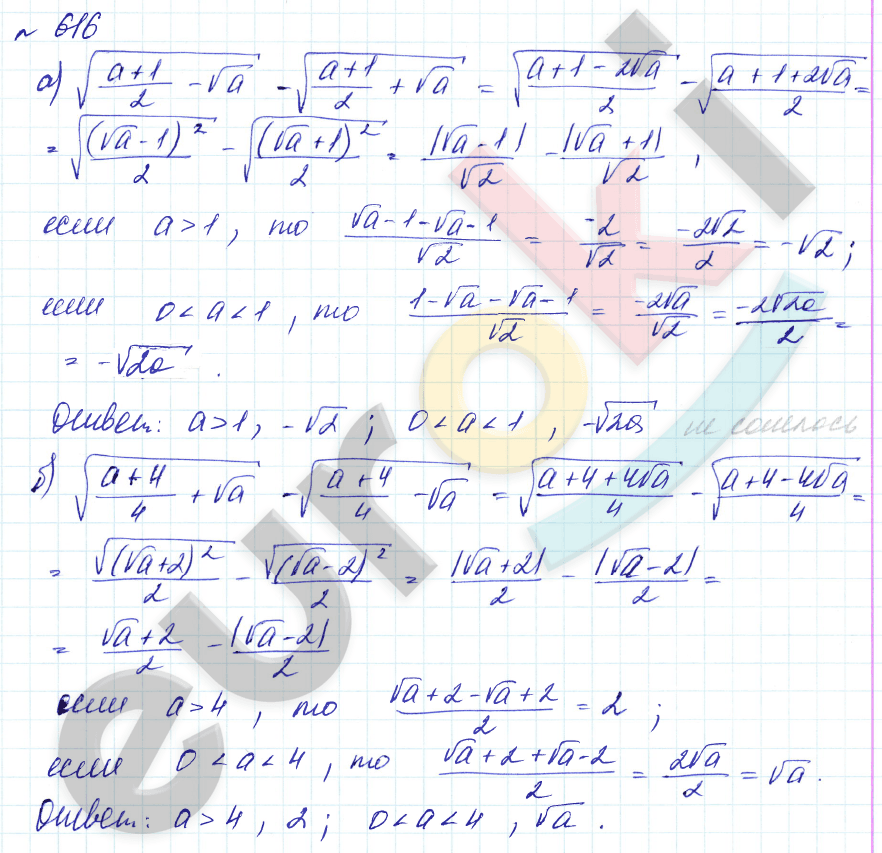 ~ 616
а) √((a+1)/2 - √a) - √((a+1)/2 + √a) = √((a+1-2√a)/2) - √((a+1+2√a)/2) =
= √((√a-1)²/2) - √((√a+1)²/2) = |√a-1|/√2 - |√a+1|/√2 ,
если a>1, то (√a-1-√a-1)/√2 = -2/√2 = -2√2/2 = -√2;
если 0<a<1, то (1-√a-√a-1)/√2 = -2√a/√2 = -2√2a/2 =
= -√2a .
Ответ: a>1, -√2; 0<a<1, -√2a не сошлось
б) √((a+4)/4 + √a) - √((a+4)/4 - √a) = √((a+4+4√a)/4) - √((a+4-4√a)/4) =
= √((√a+2)²)/2 - √((√a-2)²)/2 = |√a+2|/2 - |√a-2|/2 =
= (√a+2)/2 - |√a-2|/2
если a>4, то (√a+2-√a+2)/2 = 2;
если 0<a<4, то (√a+2+√a-2)/2 = 2√a/2 = √a.
Ответ: a>4, 2; 0<a<4, √a.
euroki